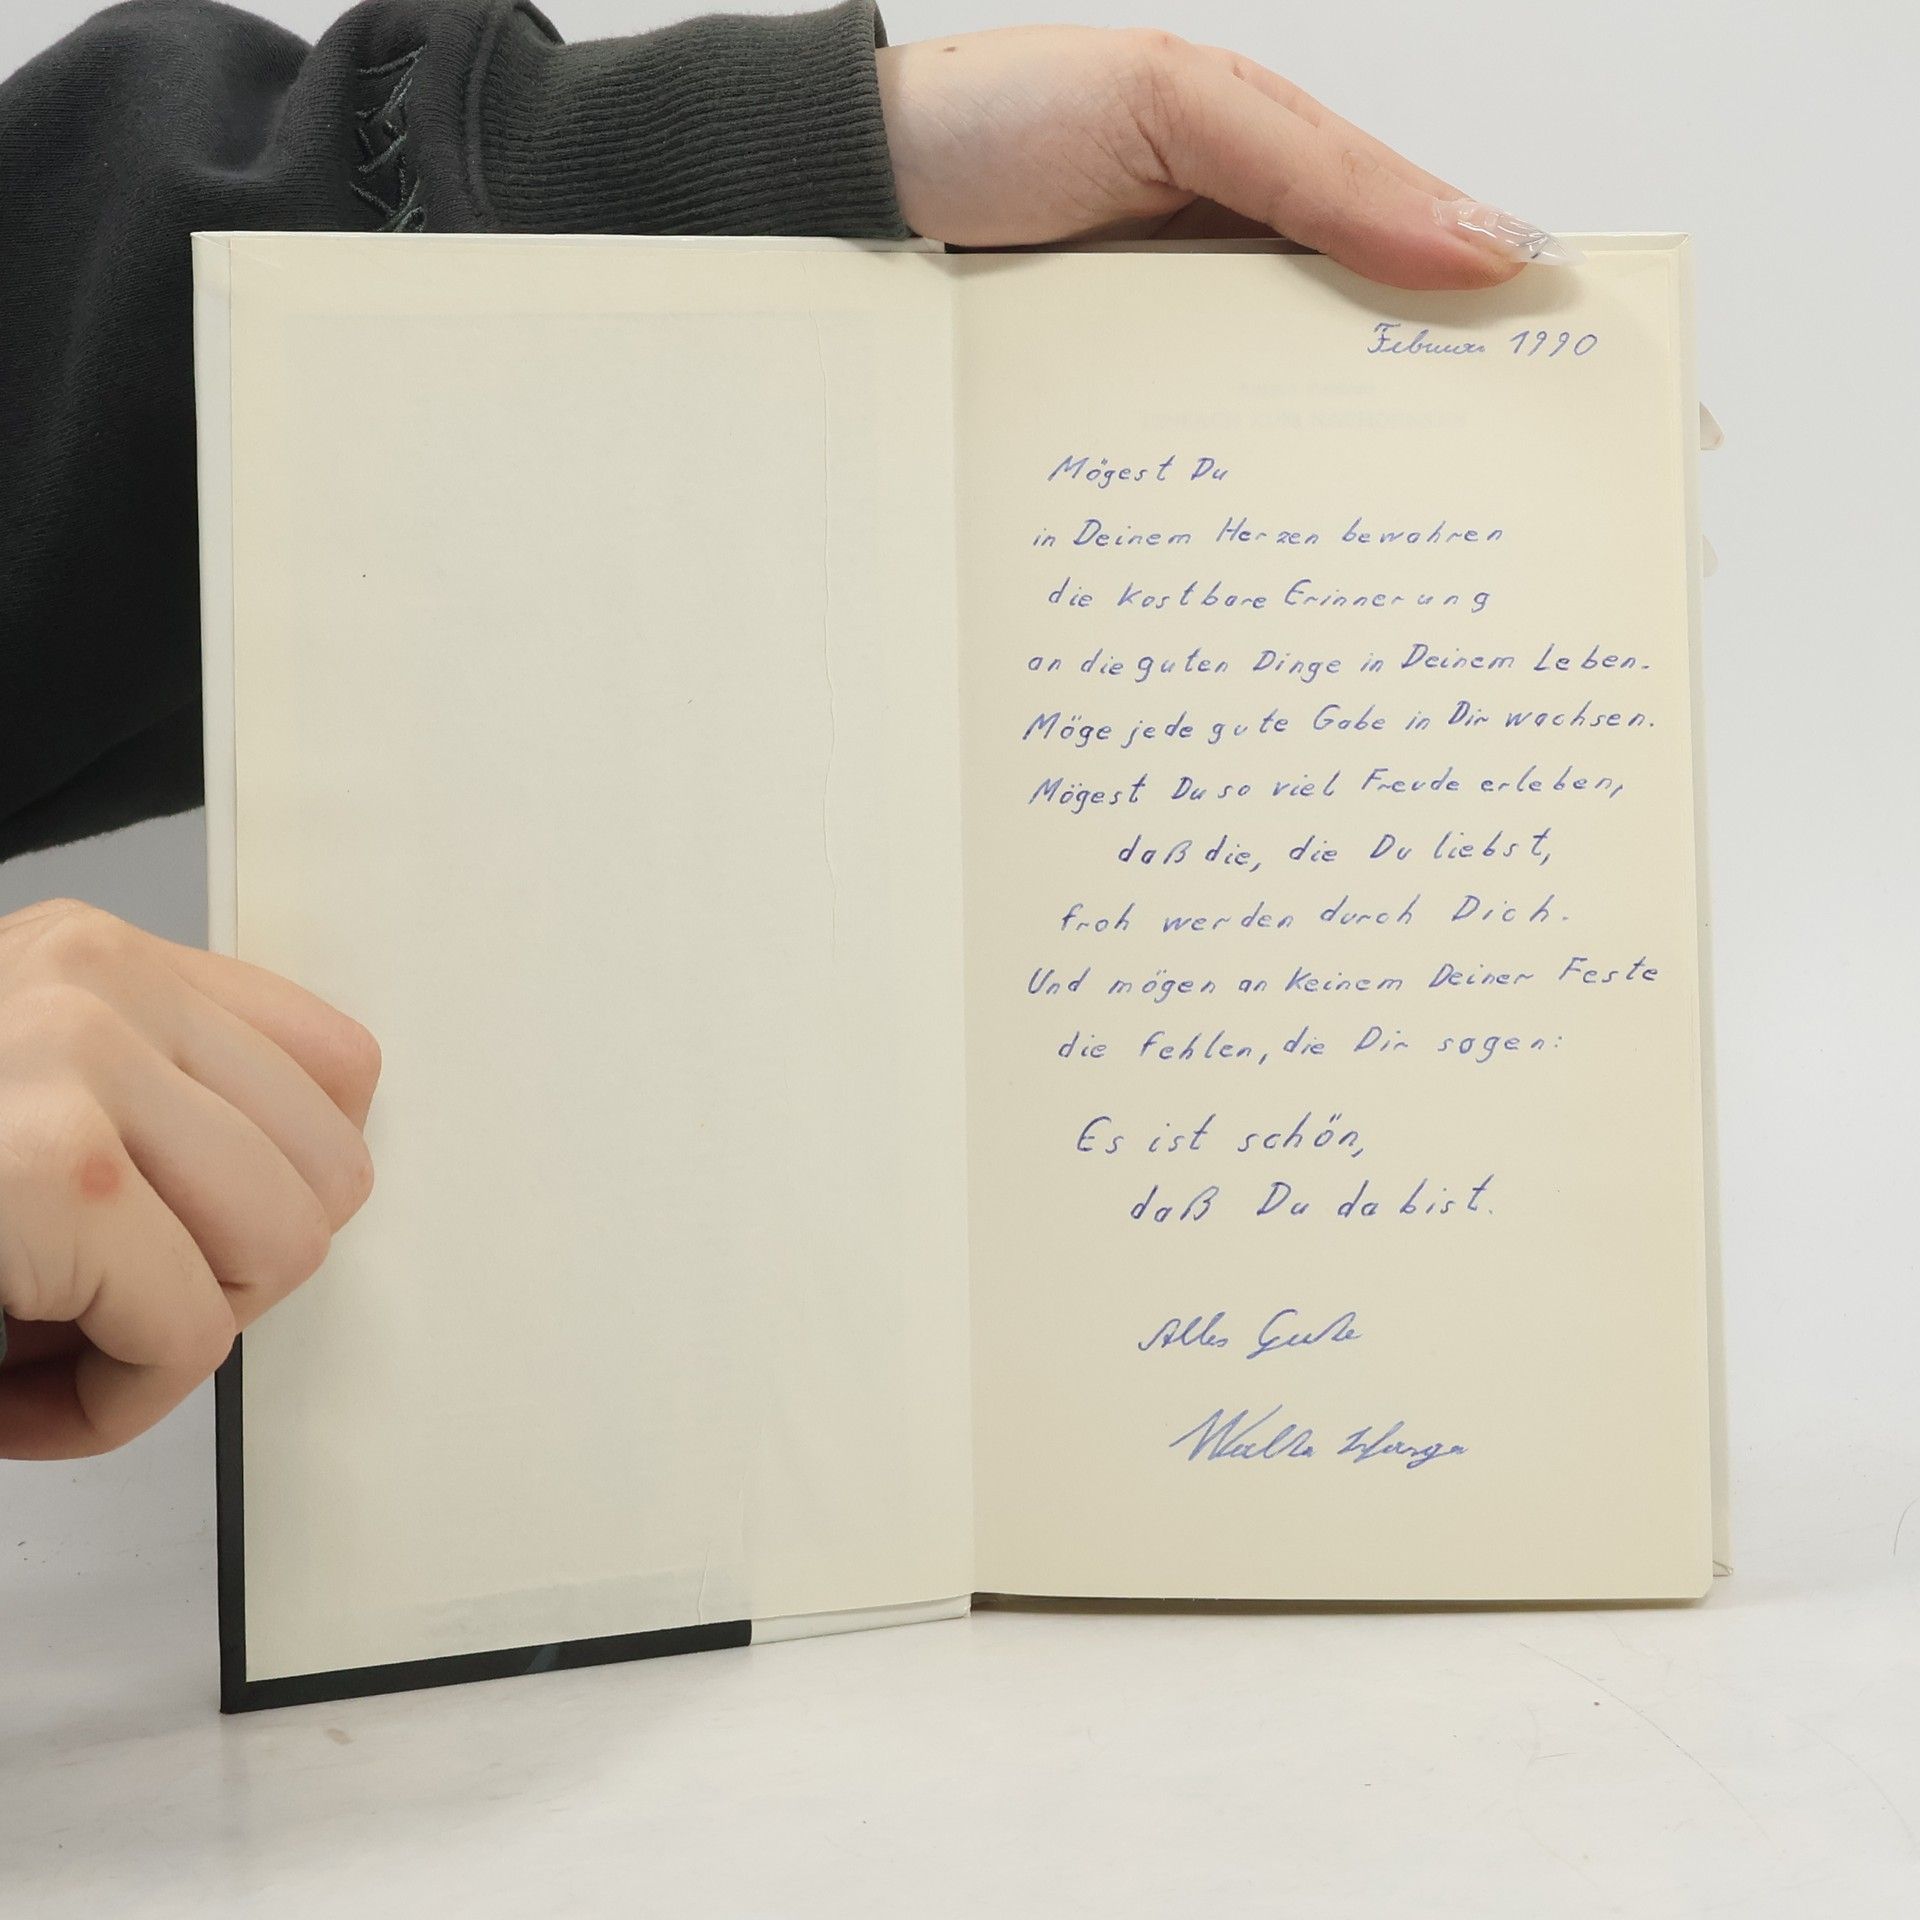 Februar 1990
Mögest Du
in Deinem Herzen bewahren
die kostbare Erinnerung
an die guten Dinge in Deinem Leben.
Möge jede gute Gabe in Dir wachsen.
Mögest Du so viel Freude erleben,
daß die, die Du liebst,
froh werden durch Dich.
Und mögen an keinem Deiner Feste
die fehlen, die Dir sagen:
Es ist schön,
daß Du da bist.
Alles Gute